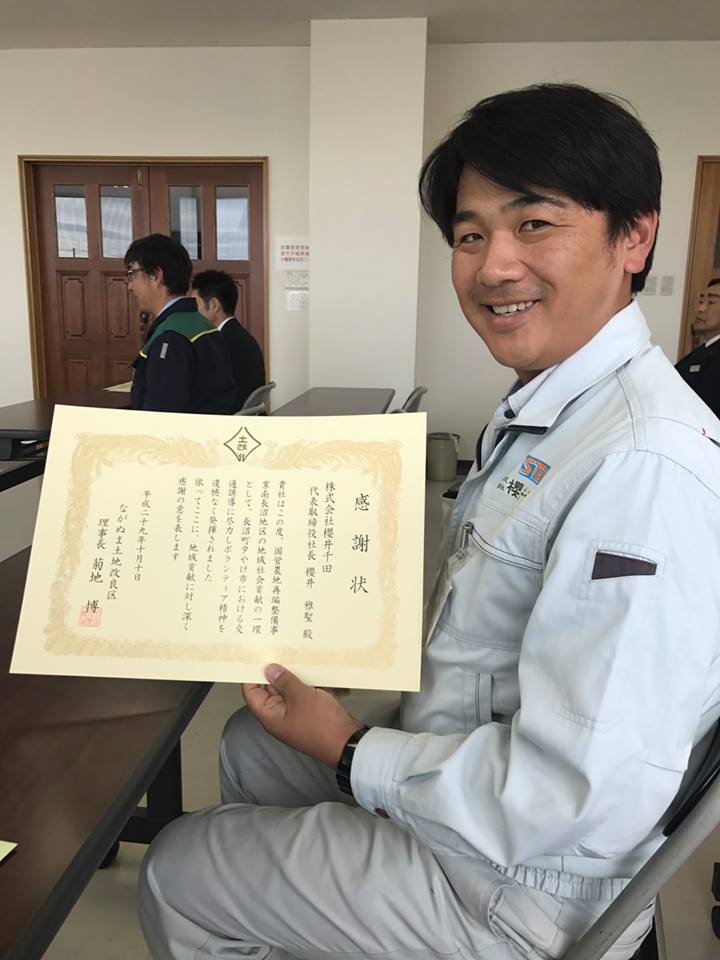 感謝状
株式会社櫻井千田
代表取締役社長 櫻井 雅聖 殿
貴社はこの度、国営農地再編整備事
業南長沼地区の地域社会貢献の一環
として、長沼町夕やけ市における交
通誘導に尽力しボランティア精神を
遺憾なく発揮されました
依ってここに、地域貢献に対し深く
感謝の意を表します
平成二十九年十月十日
ながぬま土地改良区
理事長 菊地 博